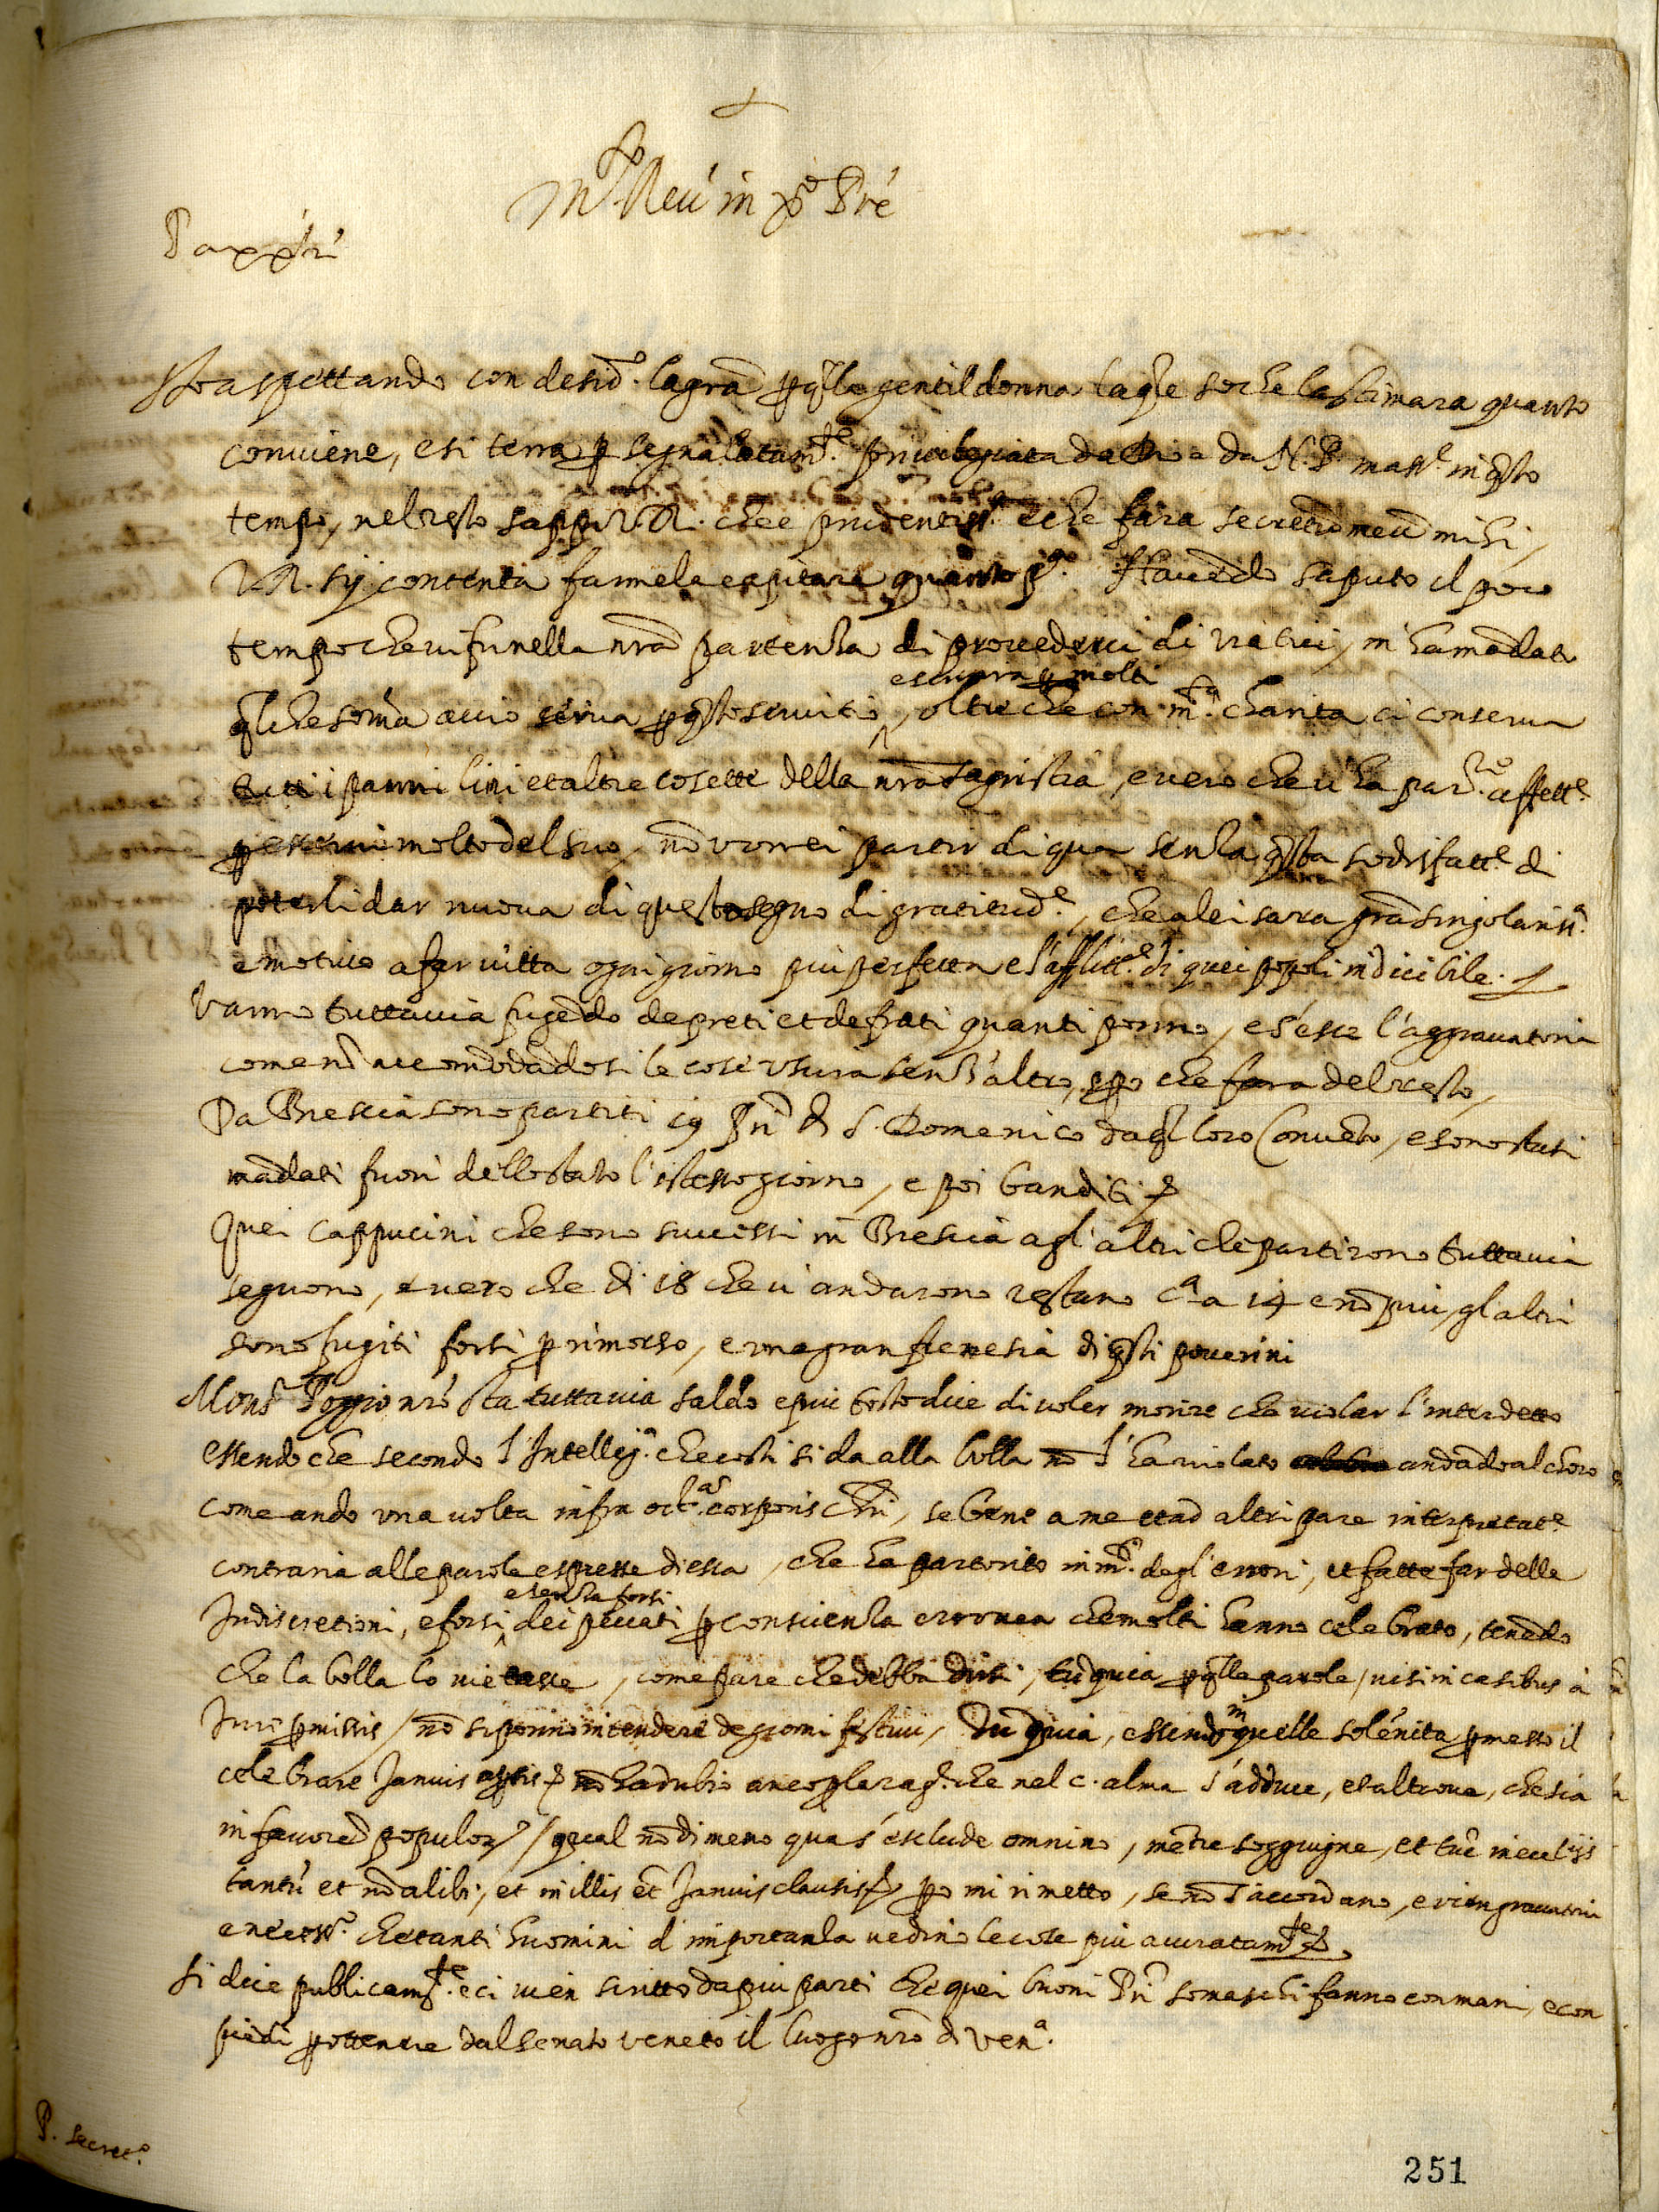 +
M.to Reu in xo Pre
Pax xpi
Sto aspettando con desid.o la gra p qlla gentildonna laqle so che la stimara quanto
conuiene, e si terra p segnalatam.te priuilegiata da Dio e da N. P. mass.e in qsto
tempo, nel resto sappi V.R. che e prudentiss.a e che fara secretu meu mihi,
V.R. sij contenta farmela capitare quanto p.a Hauedo saputo il poco
tempo che ui fu nella nra partenza di prouederci di viatici, m'ha madato
qlche soma accio serua p qsto seruitio, oltre che con m.ta charita ci conserua
e scuora p molti
tutti i panni lini et altre cosette della nra sagristia, e uero che u'ha par.re affett.e
p esserui molto del suo, no vorrei partir di qua senza qsta sodisfatt.e di
poterli dar nuoua di questo segno di gratitud.e, che a lei sara gra singolariss.a
e motiuo a far uitta ogni giorno piu perfetta e l'afflitt.e di quei popoli indicibile.
Vanno tuttauia fugedo de preti et de frati quanti ponno, e s'esce l'aggrauatoria
come no accomodadosi le cose vscira senz'altro, po che fara del resto,
Da Brescia sono partiti 19 Pri di S. Domenico dagl loro Conueto, e sono stati
madati fuori dello stato l'istesso giorno, e poi banditi
Quei Cappucini che sono successi in Brescia agl'altri che partirono tuttauia
seguono, e uero che di 18 che ui andarono restano c.a a 14 e no piu, gl altri
sono fugiti forsi p rimorso, e una gran frenesia di qsti pouerini
Mons.r Poggio nro sta tuttauia saldo e piu tosto dice di uoler morire che uiolar l'interdetto
essendo che secondo l'Intellig.a che costi si da alla bolla no l'ha uiolato andado al choro
come ando una uolta infra oct.as corporis Chri, se bene a me et ad altri pare interpretat.e
contraria alle parole espresse di essa, che ha partorito in m.ti degl'errori, et fatto far delle
Indiscretioni, e forsi dei peccati p conscienza erronea che molti hanno celebrato, tenedo
e senza forsi
che la bolla lo uietasse, come pare che debba dirsi, tu quia p qlle parole / nisi in casibus à
Jure pmissis / no si ponno intendere de giorni festiui, Tu quia, essendo in quelle solenita pmesso il
celebrare Januis aptis no ha dubio anco p la rag. che nel c. alma s'adduce, et altroue, che sia
in fauore populor / qual no dimeno qua s'esclude omnino, metre soggiugne, et tuc in ecclijs
tantu et no alibi, et in illis et Januis clausis po mi rimetto, se no s'accordano, e vien grauatoria
e necess.o che tanti huomini d'importanza uedino le cose piu accuratam.te
Si dice publicam.te e ci uien scritto da piu parti che quei buoni Pri somaschi fanno con mani, e con
piedi p ottenere dal senato veneto il luogo nro di Ven.a
P. Secret.o
251